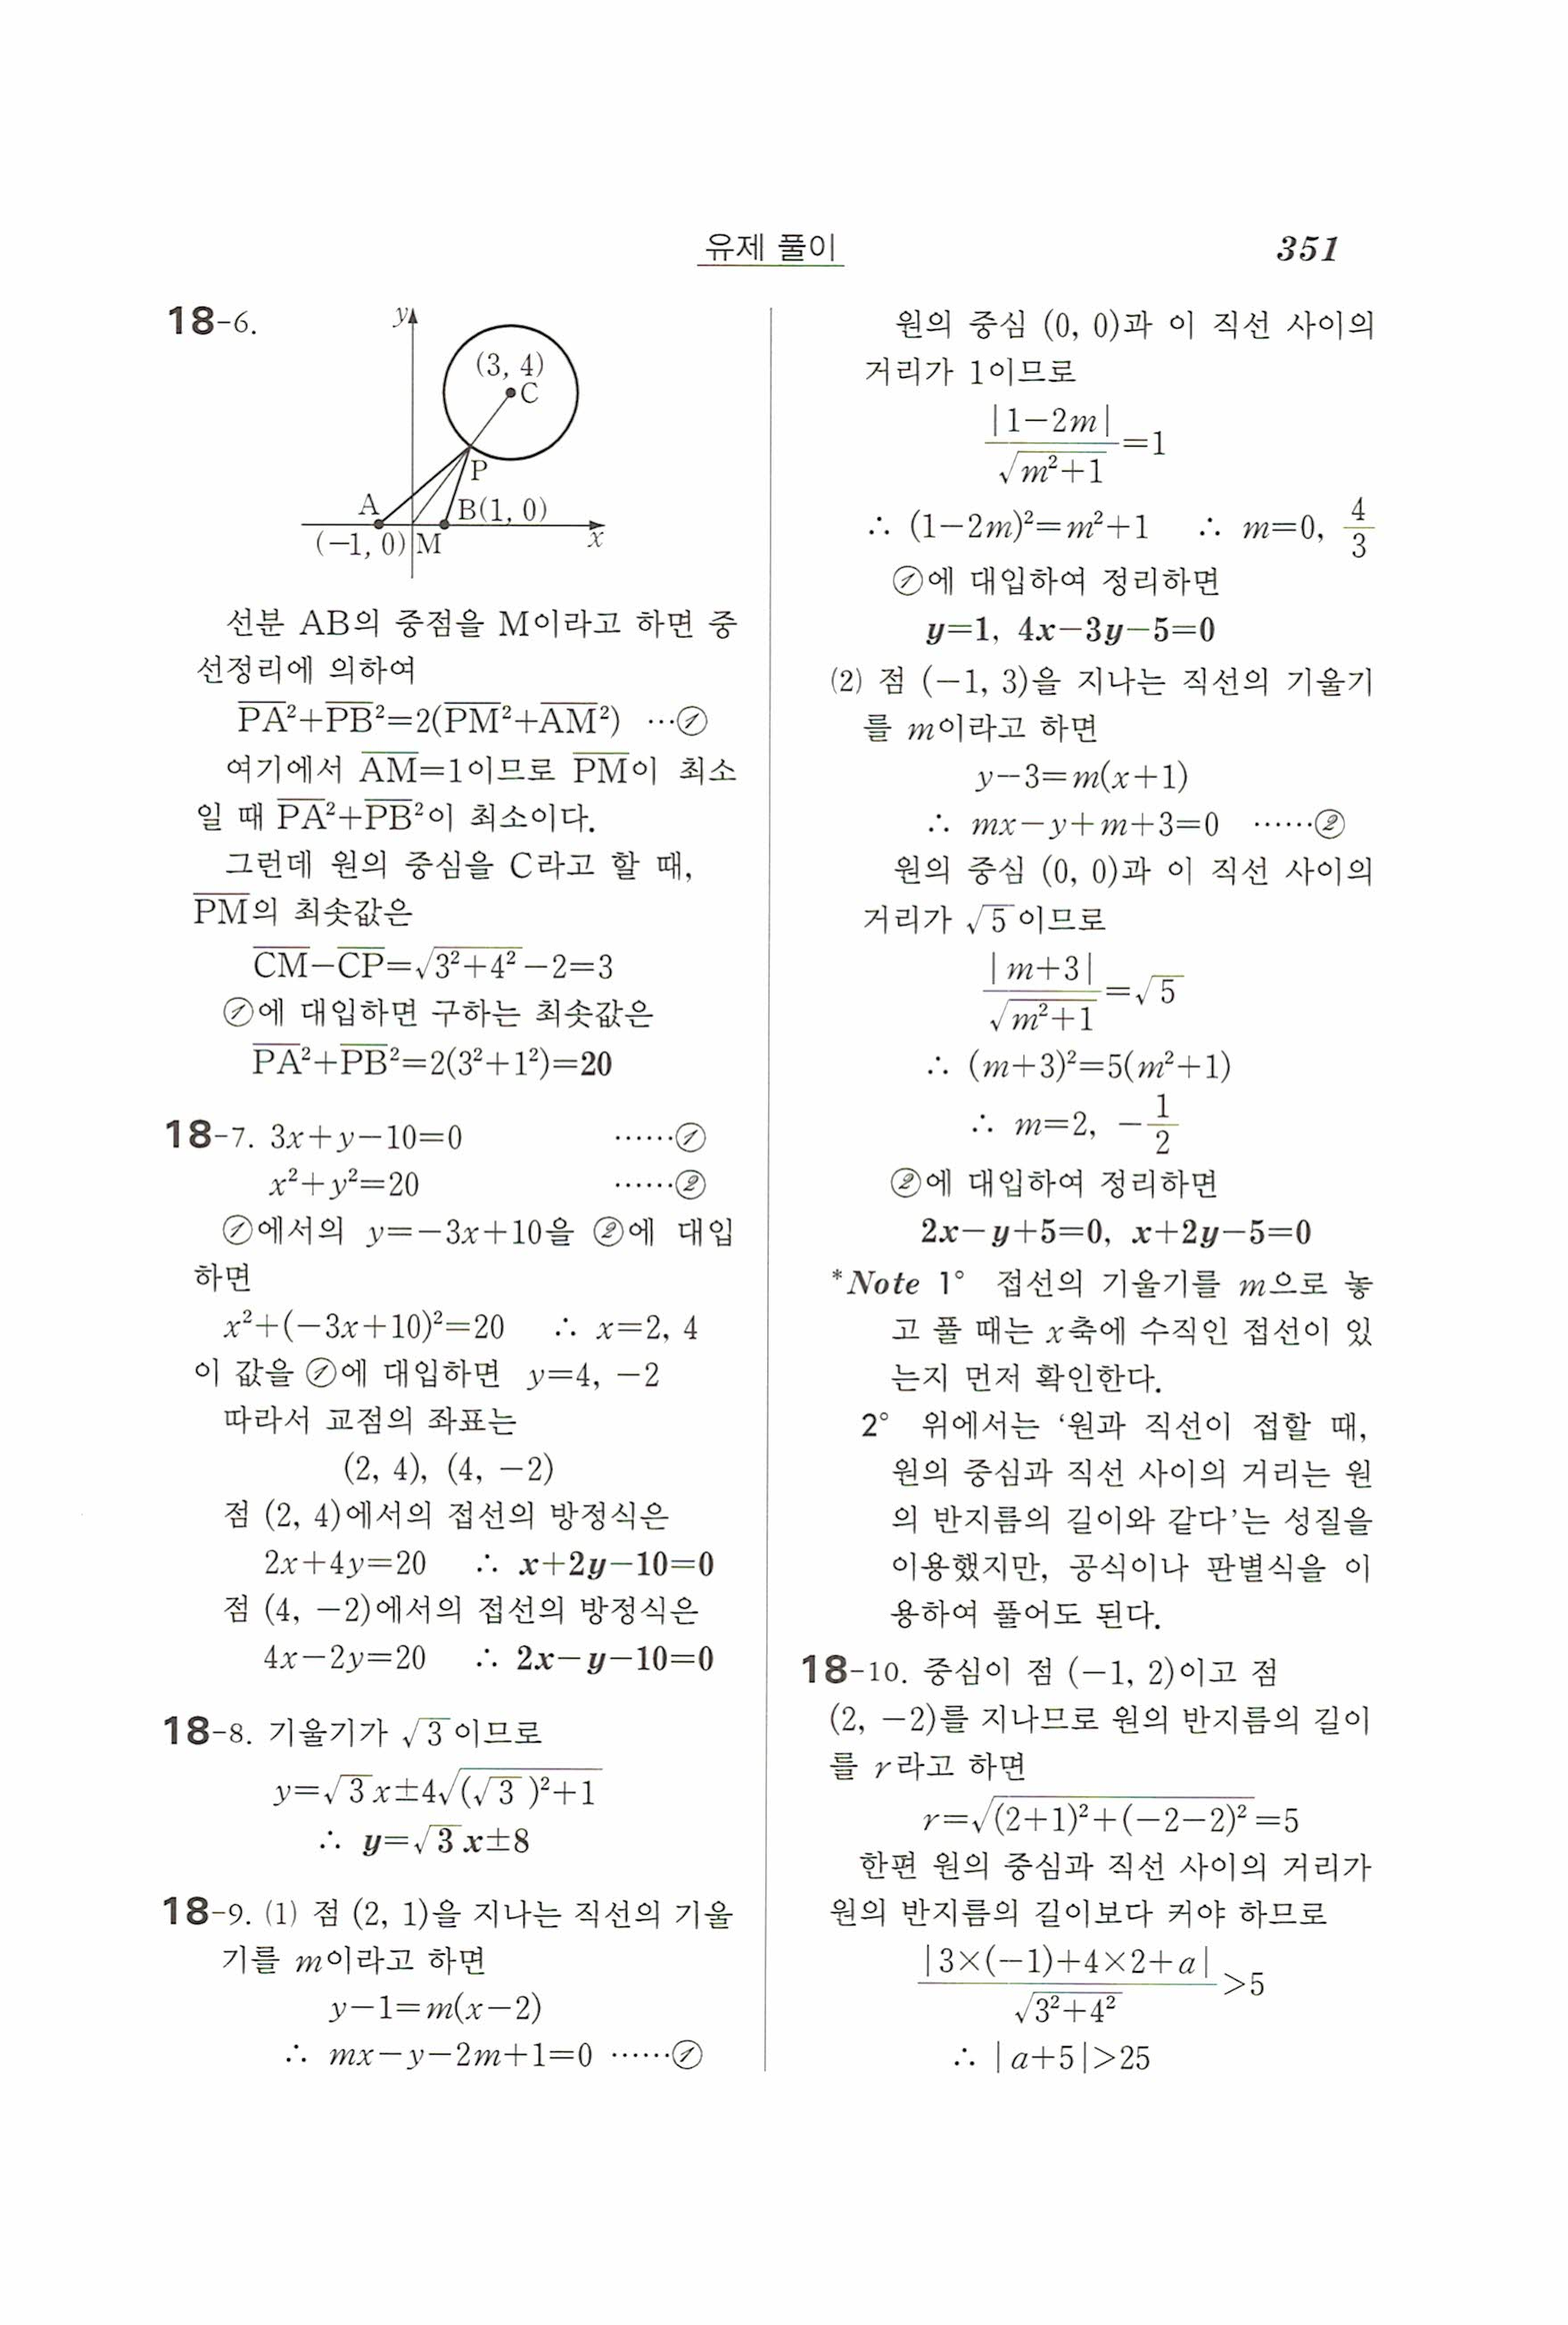 유제 풀이
351
18-6.
y
(3, 4)
C
P
A
B(1, 0)
(-1, 0)
M
x
선분 AB의 중점을 M이라고 하면 중
선정리에 의하여
\overline{PA}²+\overline{PB}²=2(\overline{PM}²+\overline{AM}²) …①
여기에서 \overline{AM}=1이므로 \overline{PM}이 최소
일 때 \overline{PA}²+\overline{PB}²이 최소이다.
그런데 원의 중심을 C라고 할 때,
\overline{PM}의 최솟값은
\overline{CM}-\overline{CP}=√(3²+4²)-2=3
①에 대입하면 구하는 최솟값은
\overline{PA}²+\overline{PB}²=2(3²+1²)=20
18-7. 3x+y-10=0 ……①
x²+y²=20 ……②
①에서의 y=-3x+10을 ②에 대입
하면
x²+(-3x+10)²=20 ∴ x=2, 4
이 값을 ①에 대입하면 y=4, -2
따라서 교점의 좌표는
(2, 4), (4, -2)
점 (2, 4)에서의 접선의 방정식은
2x+4y=20 ∴ x+2y-10=0
점 (4, -2)에서의 접선의 방정식은
4x-2y=20 ∴ 2x-y-10=0
18-8. 기울기가 √3이므로
y=√3x±4√((√3)²+1)
∴ y=√3x±8
18-9. (1) 점 (2, 1)을 지나는 직선의 기울
기를 m이라고 하면
y-1=m(x-2)
∴ mx-y-2m+1=0 ……①
원의 중심 (0, 0)과 이 직선 사이의
거리가 1이므로
|1-2m|/√(m²+1)=1
∴ (1-2m)²=m²+1 ∴ m=0, 4/3
①에 대입하여 정리하면
y=1, 4x-3y-5=0
(2) 점 (-1, 3)을 지나는 직선의 기울기
를 m이라고 하면
y-3=m(x+1)
∴ mx-y+m+3=0 ……②
원의 중심 (0, 0)과 이 직선 사이의
거리가 √5이므로
|m+3|/√(m²+1)=√5
∴ (m+3)²=5(m²+1)
∴ m=2, -1/2
②에 대입하여 정리하면
2x-y+5=0, x+2y-5=0
*Note 1° 접선의 기울기를 m으로 놓
고 풀 때는 x축에 수직인 접선이 있
는지 먼저 확인한다.
2° 위에서는 ‘원과 직선이 접할 때,
원의 중심과 직선 사이의 거리는 원
의 반지름의 길이와 같다’는 성질을
이용했지만, 공식이나 판별식을 이
용하여 풀어도 된다.
18-10. 중심이 점 (-1, 2)이고 점
(2, -2)를 지나므로 원의 반지름의 길이
를 r라고 하면
r=√((2+1)²+(-2-2)²)=5
한편 원의 중심과 직선 사이의 거리가
원의 반지름의 길이보다 커야 하므로
|3×(-1)+4×2+a|/√(3²+4²)>5
∴ |a+5|>25